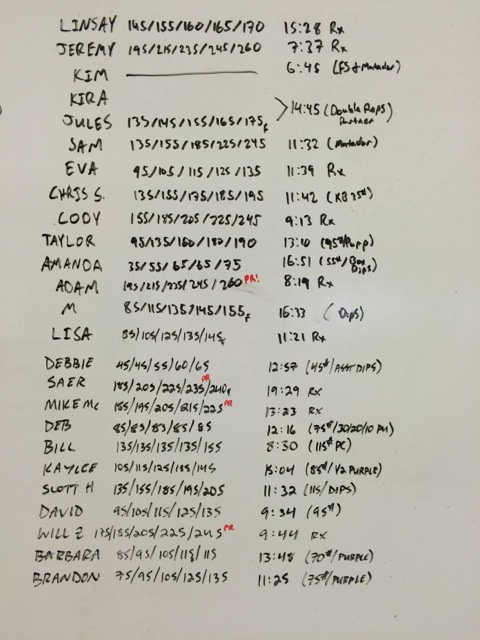 LINSAY 145/155/160/165/170 15:28 Rx
JEREMY 195/215/235/245/260 7:37 Rx
KIM 6:45 (FS & Matador)
KIRA
JULES 135/145/155/165/175F 14:45 (Double Reps) Partner
SAM 135/155/185/225/245 11:32 (Matador)
EVA 95/105/115/125/135 11:39 Rx
CHRIS S. 135/155/175/185/195 11:42 (KB 35#)
CODY 155/185/205/225/245 9:13 Rx
TAYLOR 95/135/160/180/190 (95#/Purp)
AMANDA 35/55/65/65/75 16:51 (55#/Box Dips)
ADAM 195/215/235/245/260 PR! 8:19 Rx
M 85/115/135/145/155F 16:33 (Dips)
LISA 85/105/125/135/145F 11:21 Rx
DEBBIE 45/45/55/60/65 12:57 (45#/ASST DIPS)
SAER 185/205/225/235/240F PR 19:29 RX
MIKE MC 185/195/205/215/225 PR 13:23 RX
DEB 85/83/83/85/85 12:16 (75#/30/20/10 PU)
BILL 135/135/135/135/155 8:30 (115# PC)
KAYLEE 105/115/125/135/145 15:04 (85#/1/2 PURPLE)
SCOTT H 135/155/185/195/205 11:32 (115/DIPS)
DAVID 95/105/115/125/135 9:34 (95#)
WILL Z 175/185/205/225/245 PR 9:44 RX
BARBARA 85/95/105/115/115 13:48 (70#/PURPLE)
BRANDON 75/95/105/125/135 11:25 (75#/PURPLE)